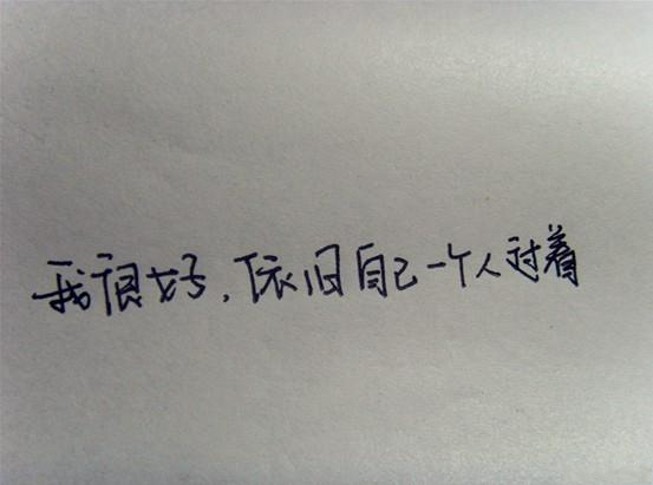 我很好，依旧自己一个人过着